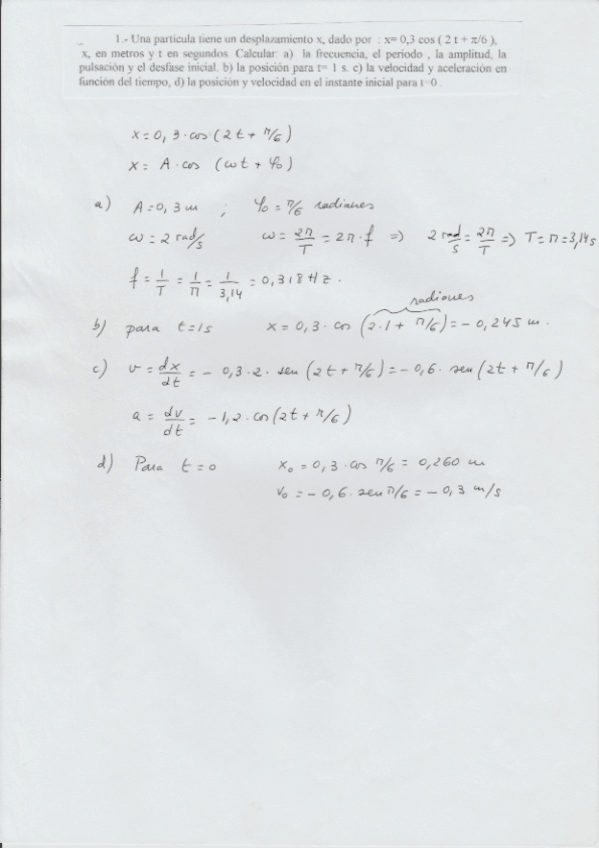 1.- Una partícula tiene un desplazamiento x, dado por : x= 0,3 cos ( 2 t + π/6 ),
x, en metros y t en segundos. Calcular: a) la frecuencia, el periodo , la amplitud, la
pulsación y el desfase inicial. b) la posición para t= 1 s. c) la velocidad y aceleración en
función del tiempo, d) la posición y velocidad en el instante inicial para t=0 .
x = 0,3·cos (2t + π/6)
x = A·cos (ωt + φ₀)
a) A = 0,3 m ; φ₀ = π/6 radianes
ω = 2 rad/s ω = 2π/T = 2π·f => 2 rad/s = 2π/T => T = π = 3,14 s
f = 1/T = 1/π = 1/3,14 = 0,318 Hz.
radianes
b) para t = 1s x = 0,3· cos (2·1 + π/6) = - 0,245 m.
c) v = dx/dt = - 0,3·2· sen (2t + π/6) = - 0,6· sen (2t + π/6)
a = dv/dt = - 1,2·cos (2t + π/6)
d) Para t = 0 x₀ = 0,3·cos π/6 = 0,260 m
v₀ = - 0,6· sen π/6 = - 0,3 m/s